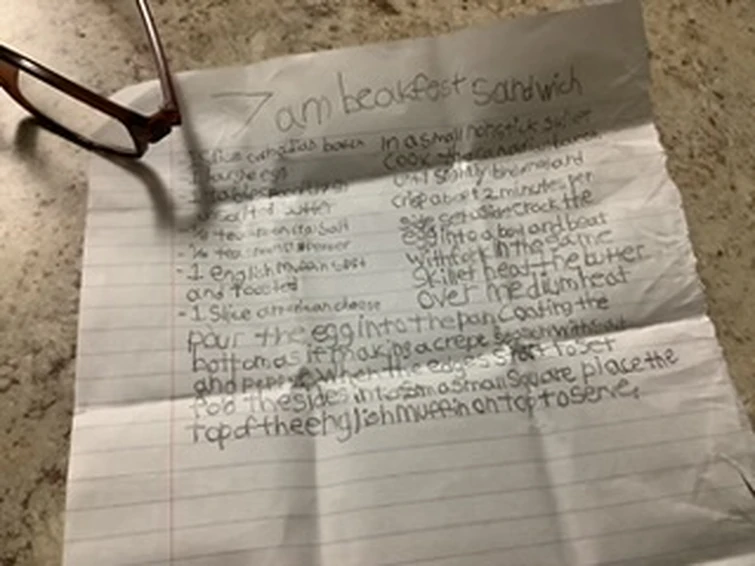 7 am beakfest sandwich
1 Slice canadian bacon
1 large egg
unsalted butter
teaspoon salt
- 1 english muffin split
and toasted
- 1 Slice american cheese
In a small nonstick skillet
COOK the canadian bacon
until slightly browned and
crisp about 2 minutes per
side set aside crack the
egg into a bowl and beat
with fork in the same
skillet heat the butter
over medium heat
Pour the egg into the pan coating the
bottom as if making a crepe season with salt
and pepper when the edges start to set
fold the sides into a small square place the
top of the english muffin on top to serve.